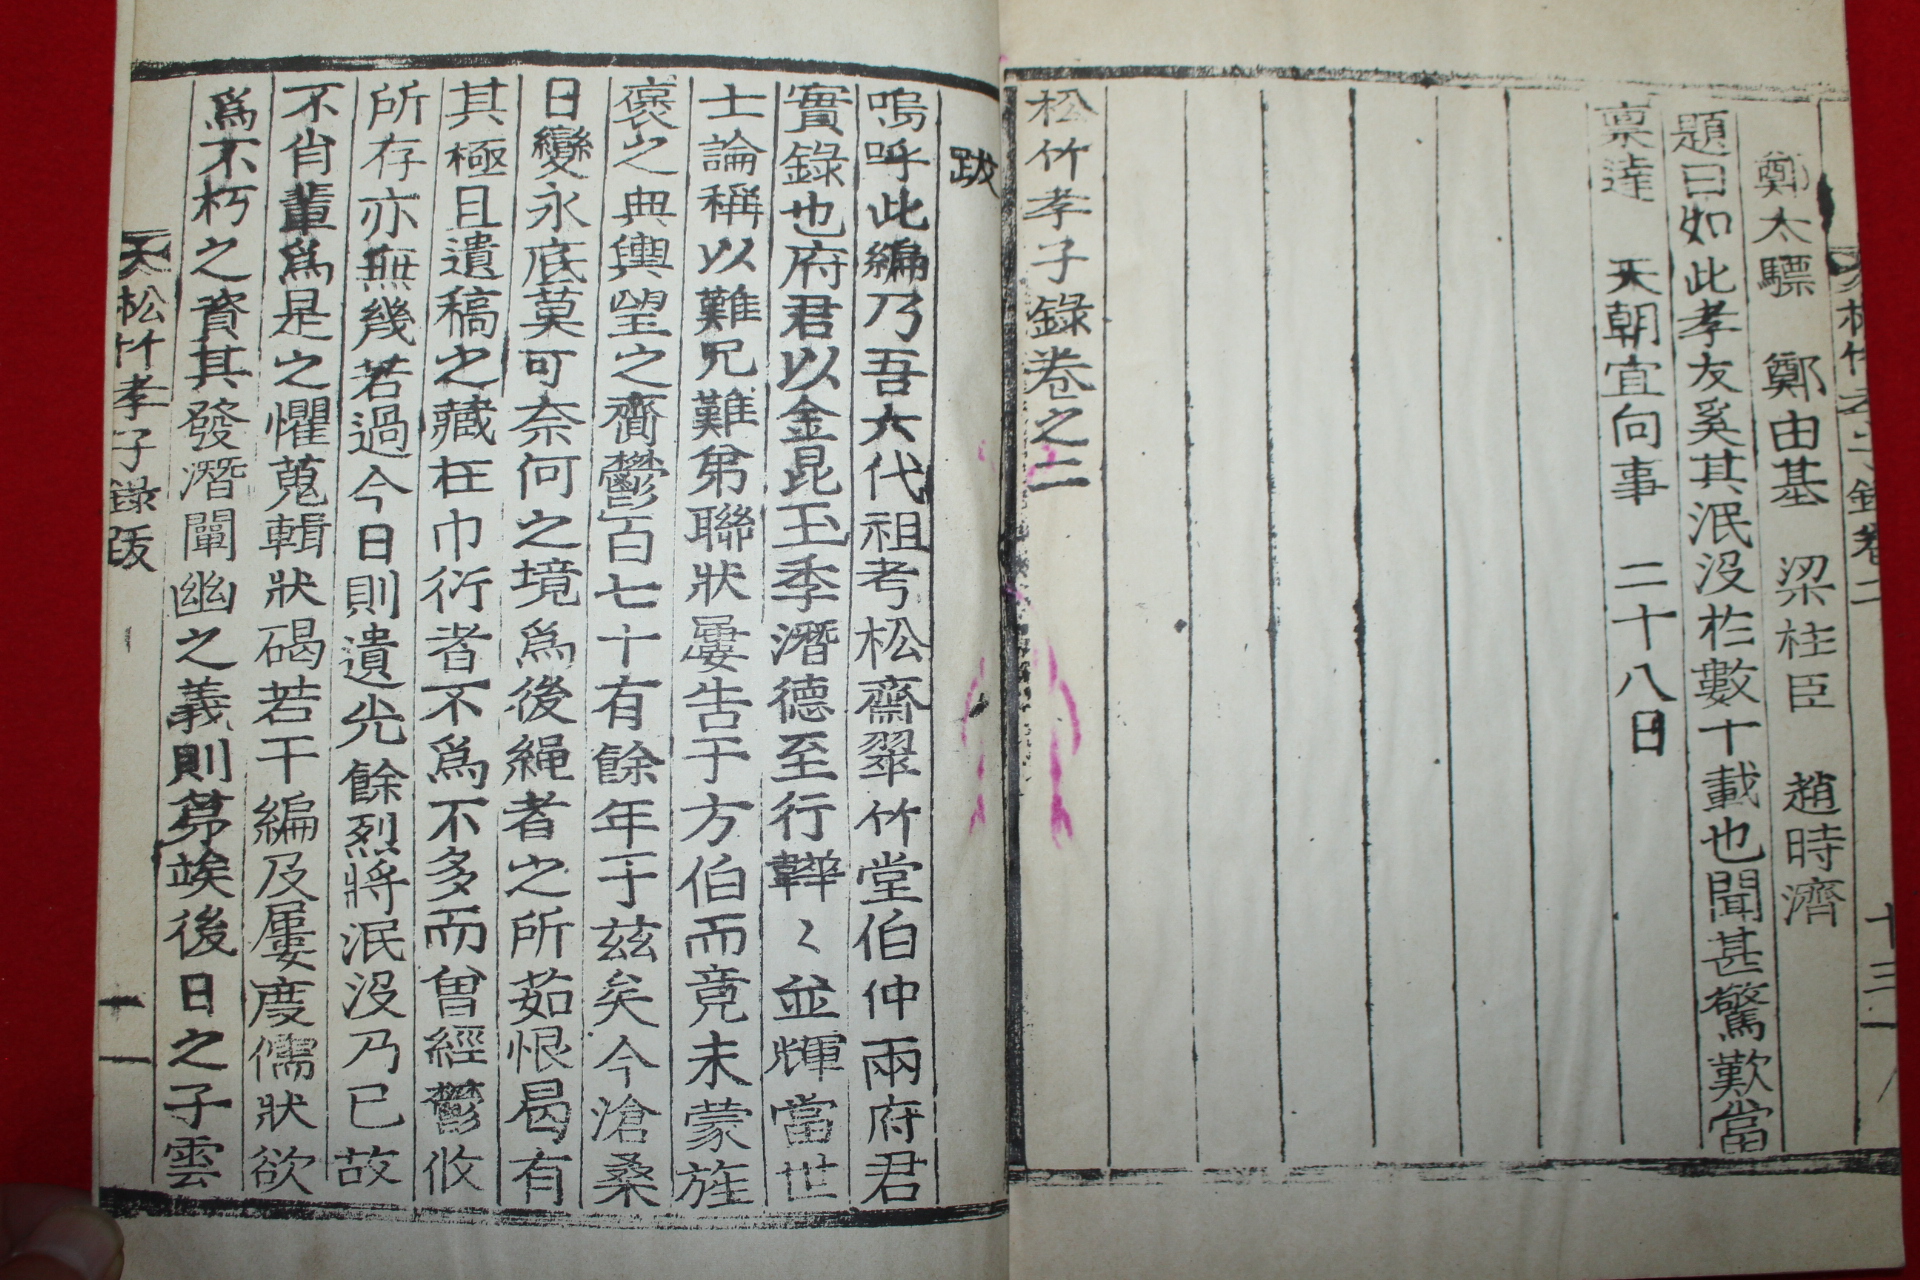 鄭太驃 鄭由基 梁柱臣 趙時濟
題曰如此孝友奚其泯沒於數十載也聞甚驚歎當
稟達 天朝宜向事 二十八日
松竹孝子錄卷之二
跋
嗚呼此編乃吾六代祖考松齋翠竹堂伯仲兩府君
實錄也府君以金昆玉季潛德至行韡〻並輝當世
士論稱以難兄難弟聯狀屢告于方伯而竟未蒙旌
褒之典輿望之齎鬱百七十有餘年于玆矣今滄桑
日變永底莫可奈何之境爲後繩者之所茹恨曷有
其極且遺稿之藏在巾衍者不爲不多而曾經鬱攸
所存亦無幾若過今日則遺光餘烈將泯沒乃已故
不肖輩爲是之懼蒐輯狀碣若干編及屢度儒狀欲
爲不朽之資其發潛闡幽之義則第竢後日之子雲
松竹孝子錄跋
一